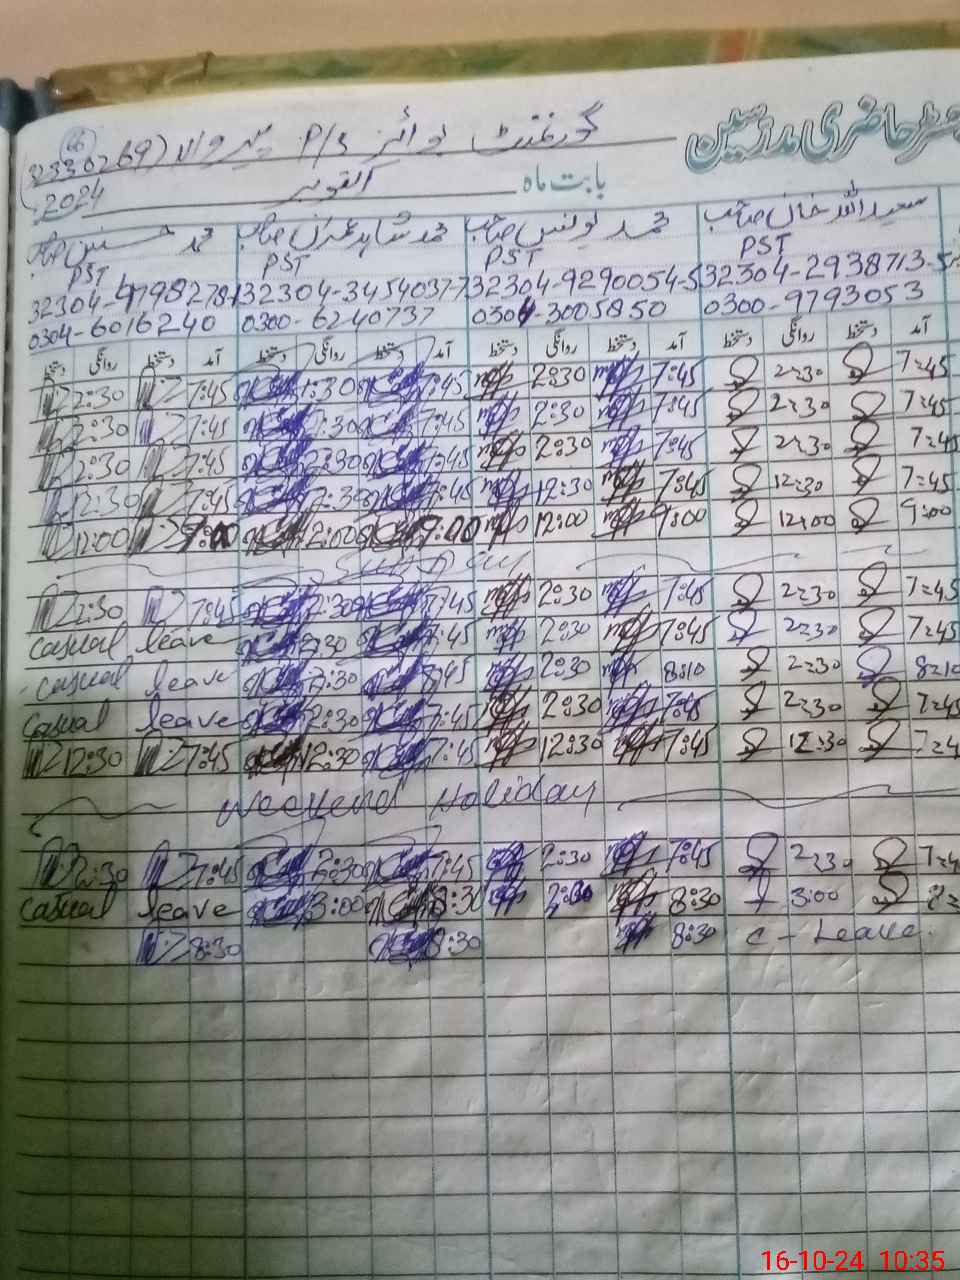 رجسٹر حاضری مدرسین
گورنمنٹ بوائز P/S (32330269
66
بابت ماہ اکتوبر 2024
سعید اللہ خان صاحب محمد یونس صاحب محمد شاہد عمران صاحب محمد حسنین صاحب
PST PST PST PST
32304-4798278-1 32304-3454037-7 32304-9290054-5 32304-2938713-5
0304-6016240 0300-6240737 0304-3005850 0300-9793053
آمد دستخط روانگی دستخط آمد دستخط روانگی دستخط آمد دستخط روانگی دستخط آمد دستخط روانگی دستخط
2:30 7:45 1:30 7:45 2:30 7:45 2:30 7:45
2:30 7:45 1:30 7:45 2:30 7:45 2:30 7:45
2:30 7:45 2:30 7:45 2:30 7:45 2:30 7:45
12:30 7:45 2:30 7:45 12:30 7:45 12:30 7:45
12:00 9:00 12:00 9:00 12:00 9:00 12:00 9:00
Sunday
2:30 7:45 2:30 7:45 2:30 7:45 2:30 7:45
casual leave 2:30 7:45 2:30 7:45 2:30 7:45
casual leave 2:30 8:45 2:30 8:10 2:30 8:10
casual leave 2:30 7:45 2:30 7:45 2:30 7:45
12:30 7:45 12:30 7:45 12:30 7:45 12:30 7:4
Weekend Holiday
2:30 7:45 2:30 7:45 2:30 7:45 2:30 7:4
casual leave 3:00 8:30 2:30 8:30 3:00
8:30 8:30 8:30 C - Leave.
16-10-24 10:35